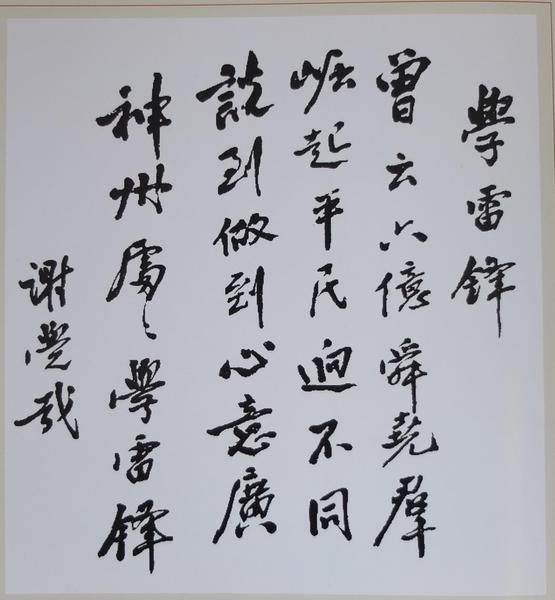 學雷鋒
曾云六億舜堯群
崛起平民迥不同
說到做到心意廣
神州處々學雷鋒
謝覺哉